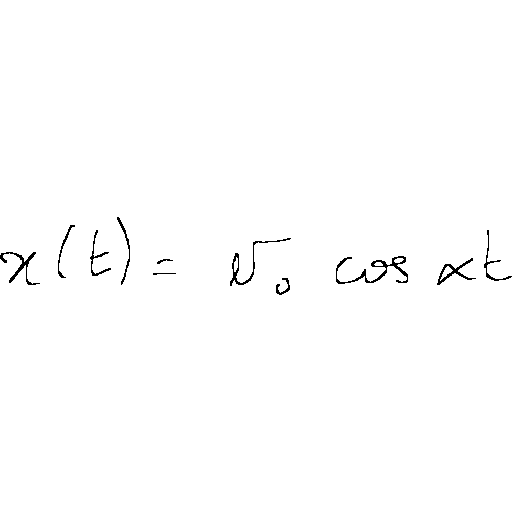 x(t) = v₀ cos αt